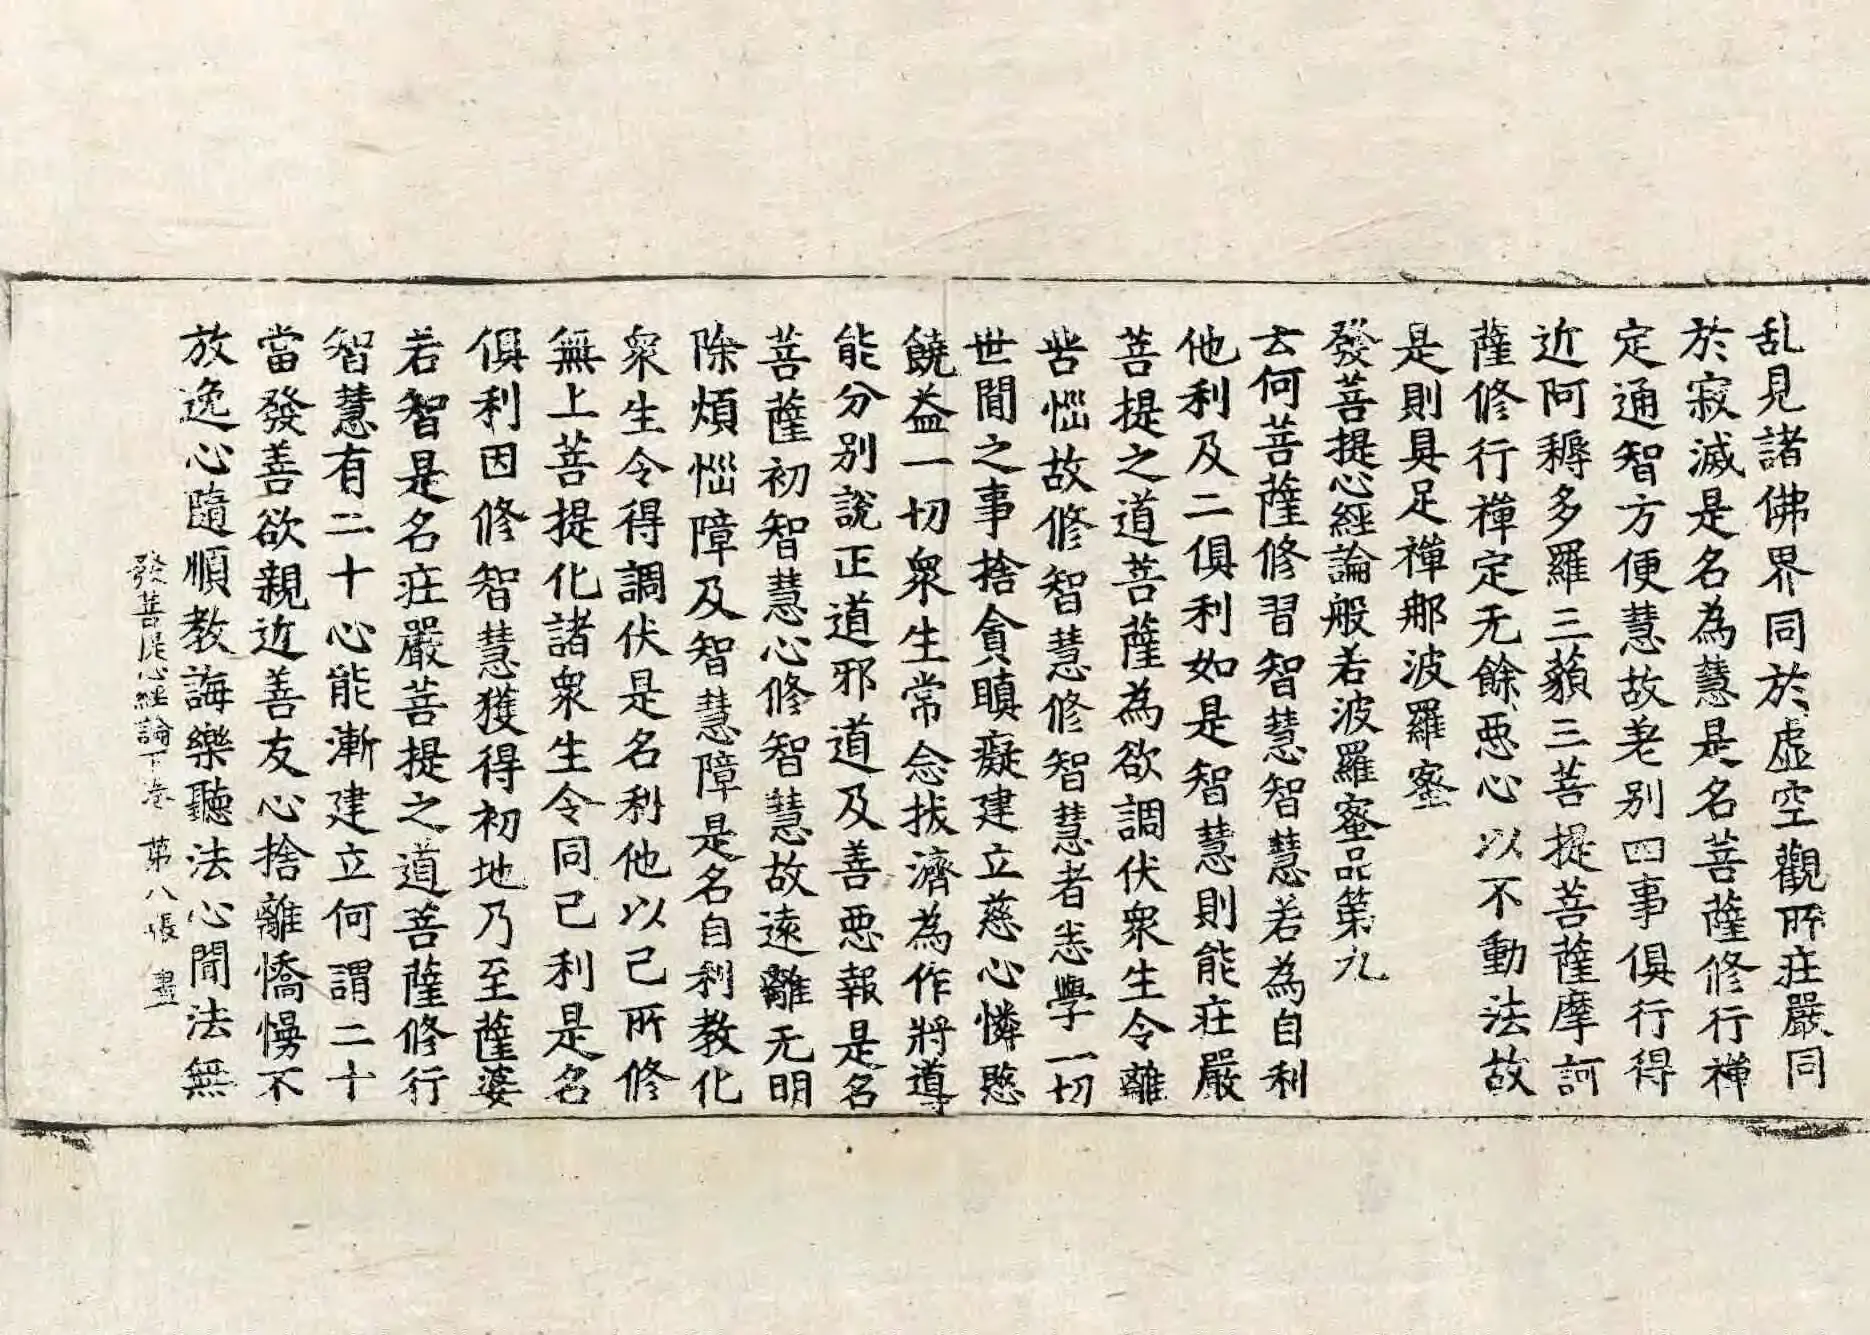 乱見諸佛界同於虛空觀所莊嚴同
於寂滅是名為慧是名菩薩修行禪
定通智方便慧故差別四事俱行得
近阿耨多羅三藐三菩提菩薩摩訶
薩修行禪定无餘惡心以不動法故
是則具足禪那波羅蜜
發菩提心經論般若波羅蜜品第九
云何菩薩修習智慧智慧若為自利
他利及二俱利如是智慧則能莊嚴
菩提之道菩薩為欲調伏衆生令離
苦惱故修智慧修智慧者悉學一切
世間之事捨貪瞋癡建立慈心憐愍
饒益一切衆生常念拔濟為作將導
能分別說正道邪道及善惡報是名
菩薩初智慧心修智慧故遠離无明
除煩惱障及智慧障是名自利教化
衆生令得調伏是名利他以己所修
無上菩提化諸衆生令同己利是名
俱利因修智慧獲得初地乃至薩婆
若智是名莊嚴菩提之道菩薩修行
智慧有二十心能漸建立何謂二十
當發善欲親近善友心捨離憍慢不
放逸心隨順教誨樂聽法心聞法無
發菩提心經論下卷 第八張 畫